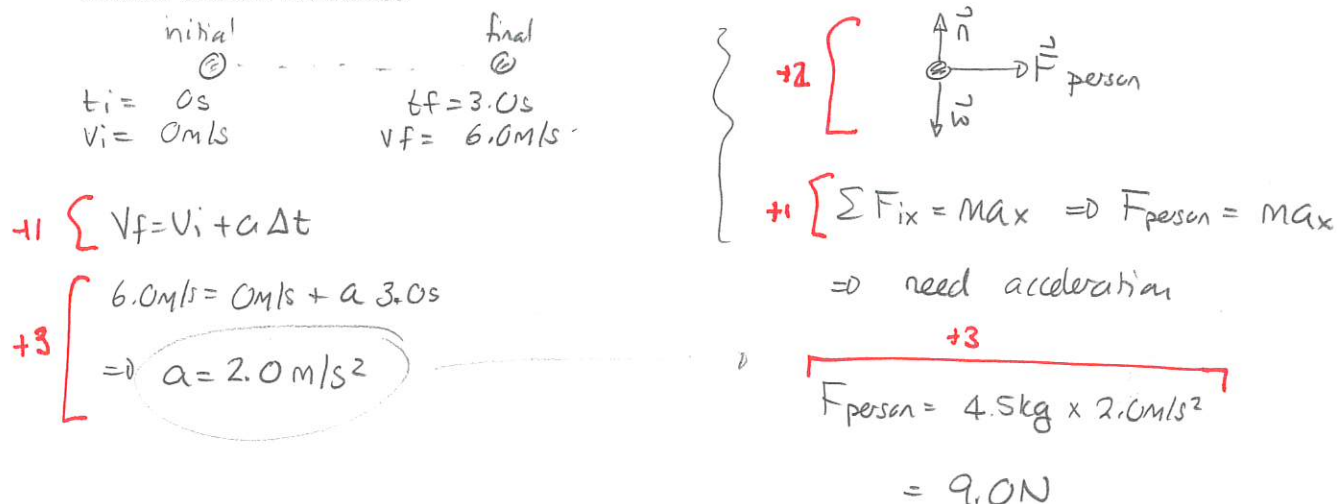 initial final
ti = 0s tf = 3.0s
vi = 0m/s vf = 6.0m/s
+1 { Vf = Vi + a Δt
+3 [ 6.0m/s = 0m/s + a 3.0s
=> a = 2.0 m/s²
+2 [ n⃗
F⃗ person
w⃗
+1 [ Σ Fix = max => Fperson = max
=> need acceleration
+3
Fperson = 4.5kg x 2.0m/s²
= 9.0N